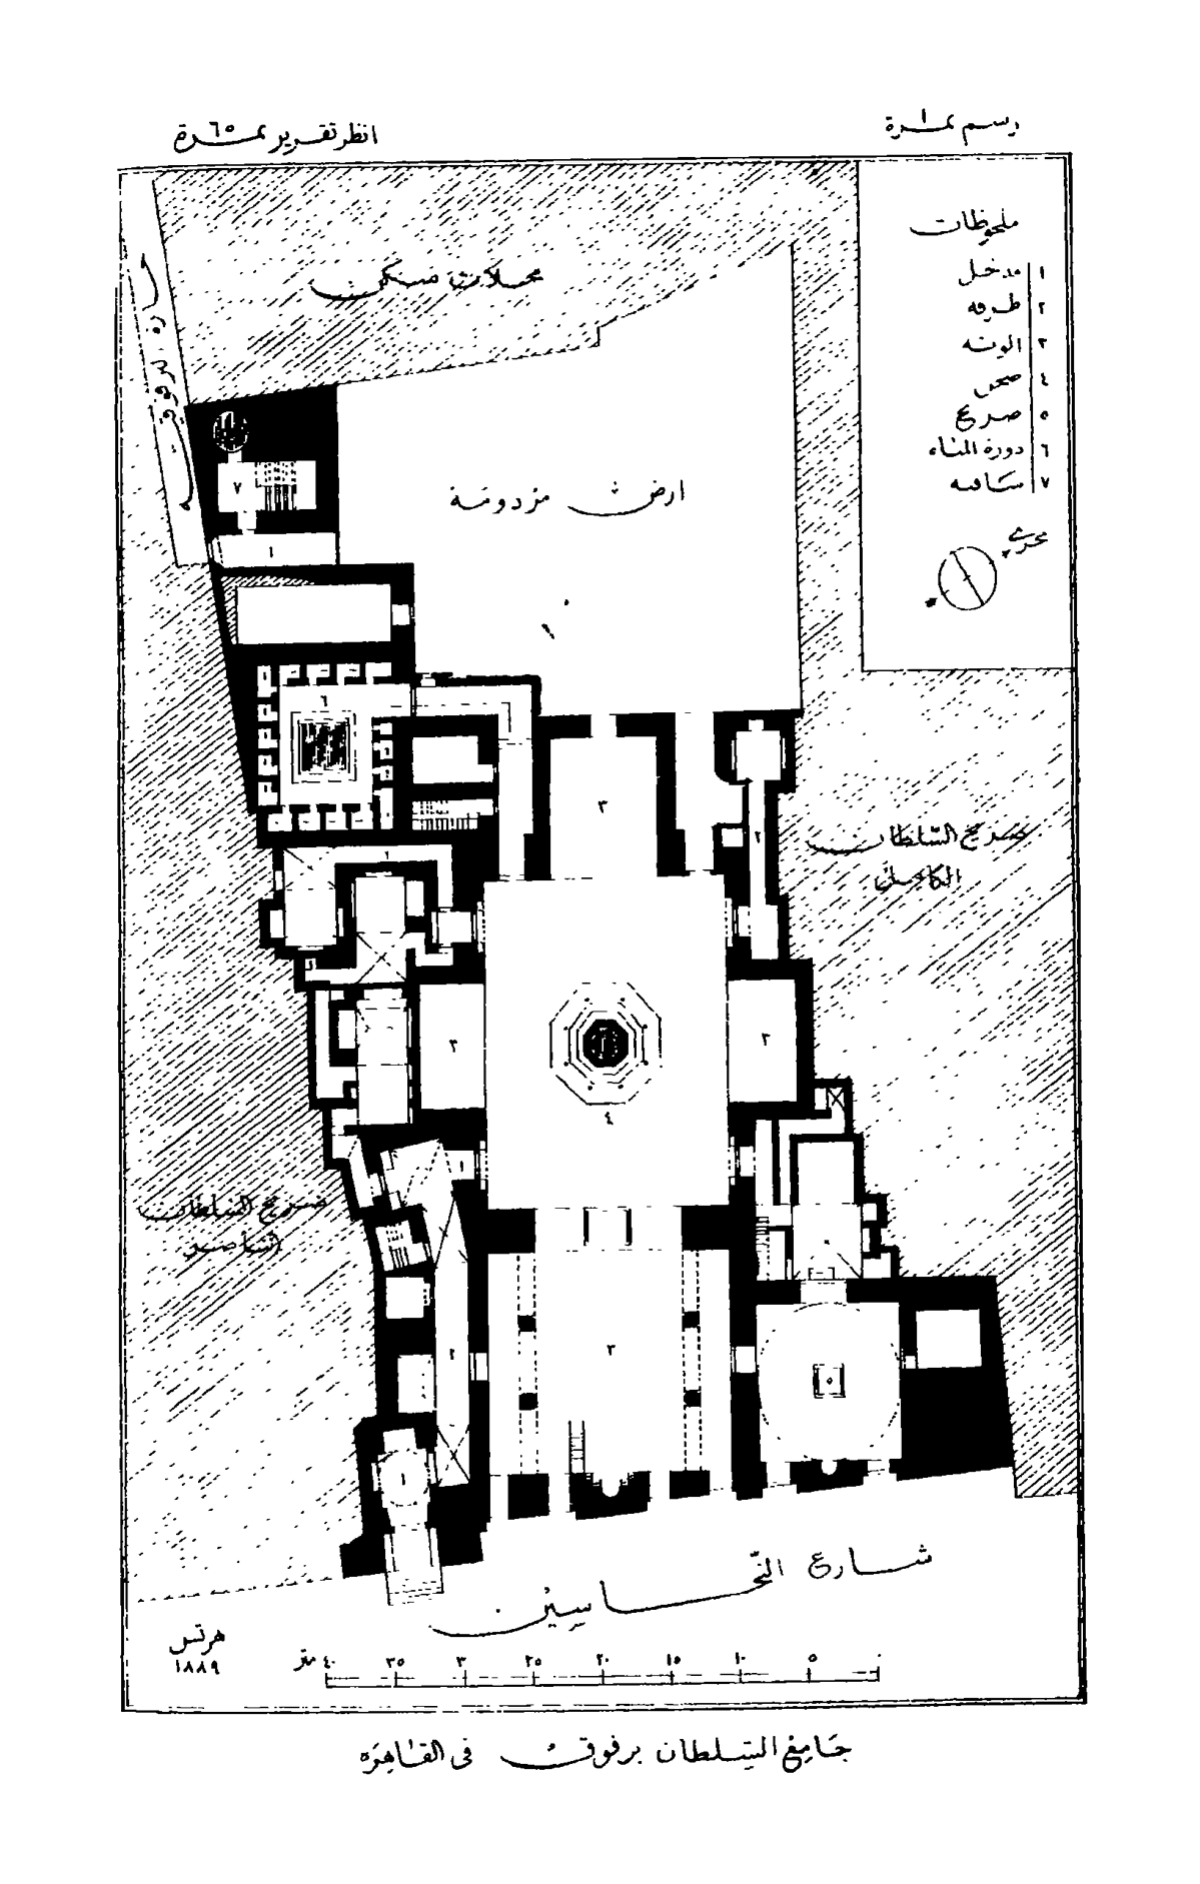 رسم نمـرة ١
انظر تقرير نمـرة ٦٥
ملحوظات
١ مدخل
٢ طرقه
٣ الوينه
٤ صحن
٥ ضريح
٦ دورة المياه
٧ ساقيه
بحرى
محلات سكن
ارض مردومة
١
٧
١
٦
٣
٢
ضريح السلطان
الكامل
١
٣
٣
٤
١
ضريح السلطان
الناصر
٢
٣
٥
١
شارع النّحاسين
هرتس
١٨٨٩
٤٠ متر ٣٥ ٣٠ ٢٥ ٢٠ ١٥ ١٠ ٥ ٠
جامع السلطان برقوق فى القاهرة